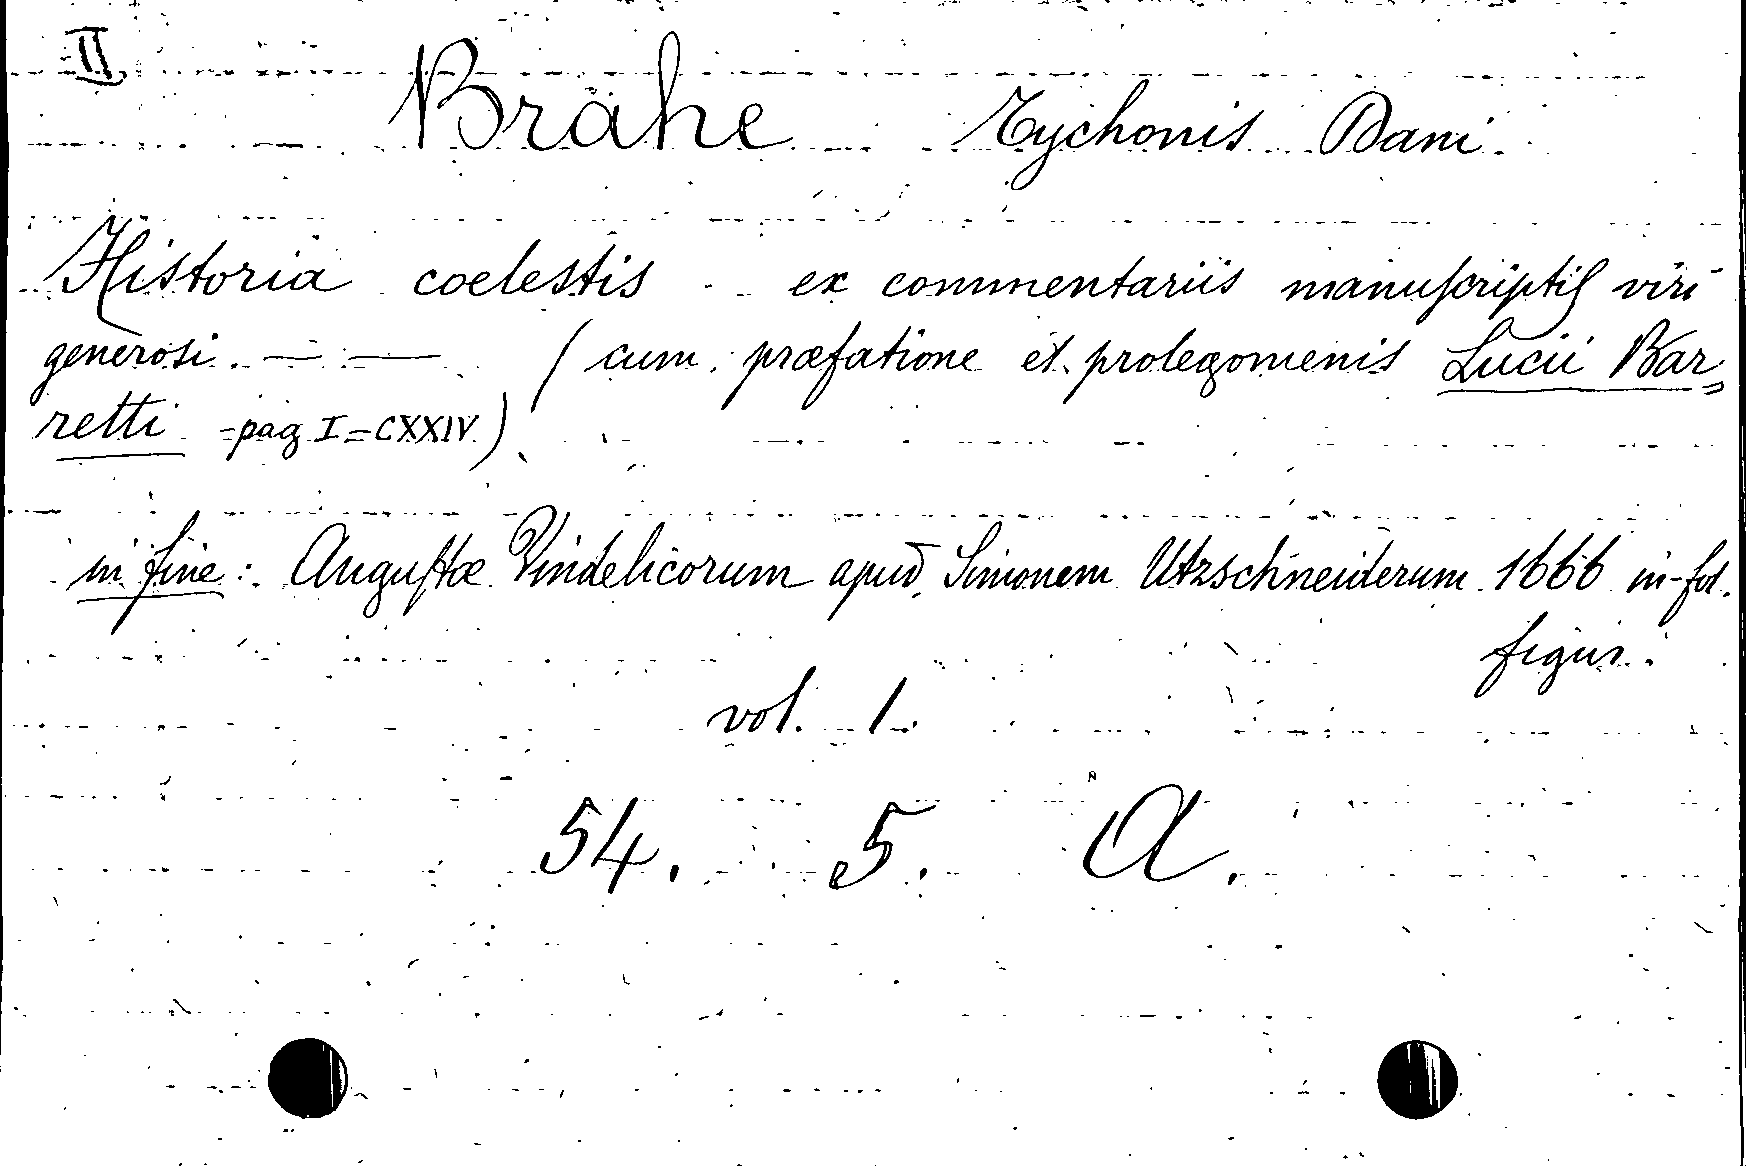 II
Brahe Tychonis Dani
Historia coelestis ex commentariis manuſcriptiſ viri
generosi. — — (cum præfatione et prolegomenis Lucii Bar=
retti =pag I=CXXIV)
in fine: Auguſtæ Vindelicorum apud Simonem Utzschneiderum 1666 in-fol.
figur.
vol. 1.
54. 5. A.